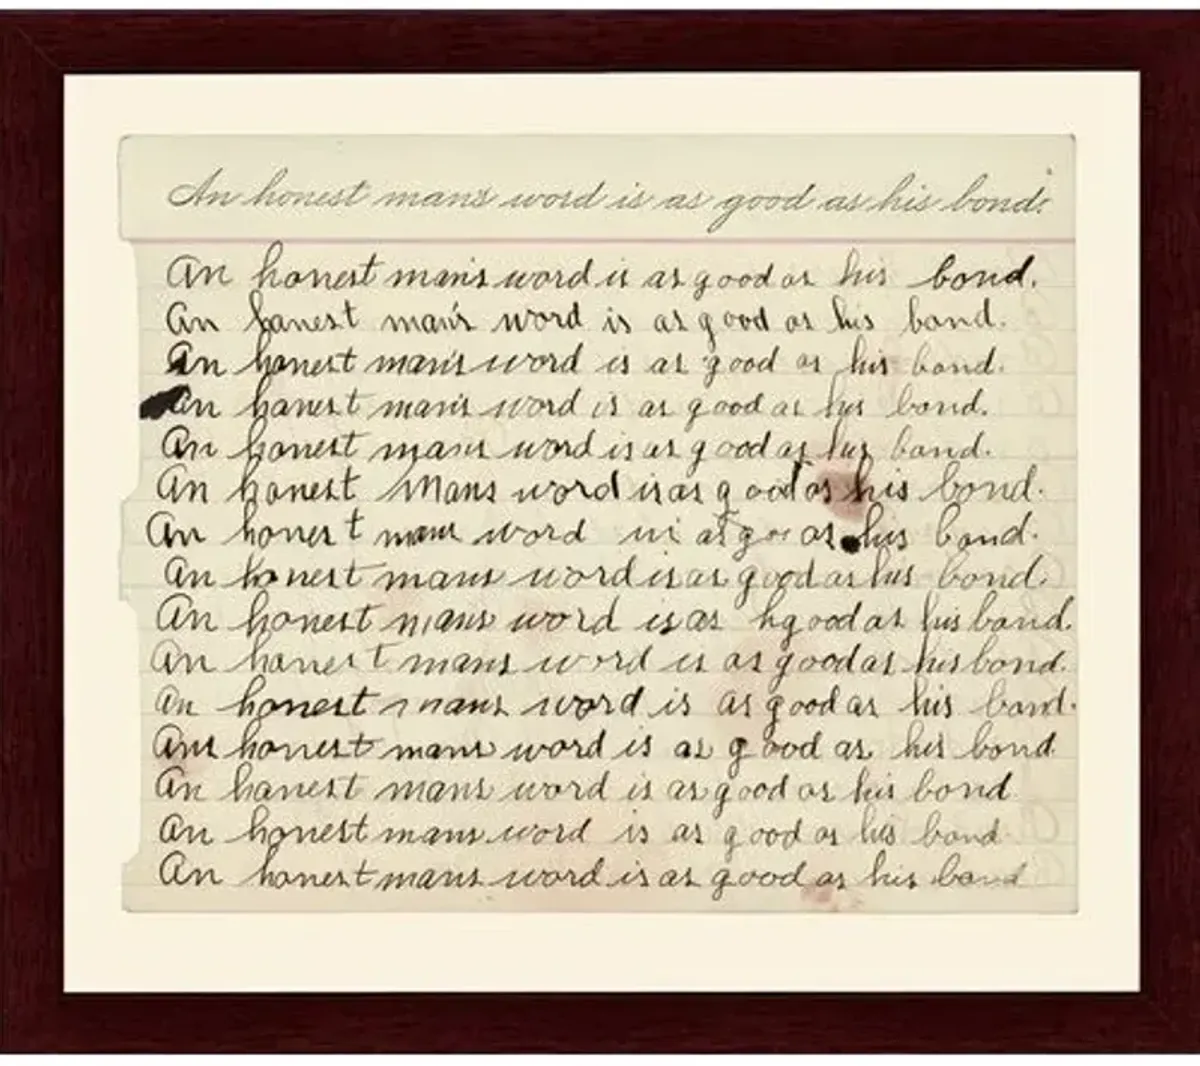 An honest man's word is as good as his bond.
An honest man's word is as good as his bond.
An honest man's word is as good as his bond.
An honest man's word is as good as his bond.
An honest man's word is as good as his bond.
An honest mans word is as good as his bond.
An honest Mans word is as good as his bond.
An honest mans word as go as his bond.
An honest mans word is as good as his bond.
An honest mans word is as hgood as his bond.
An honest mans word is as good as his bond.
An honest mans word is as good as his bond.
An honest mans word is as good as his bond.
An honest mans word is as good as his bond
An honest mans word is as good as his bond
An honest mans word is as good as his bond